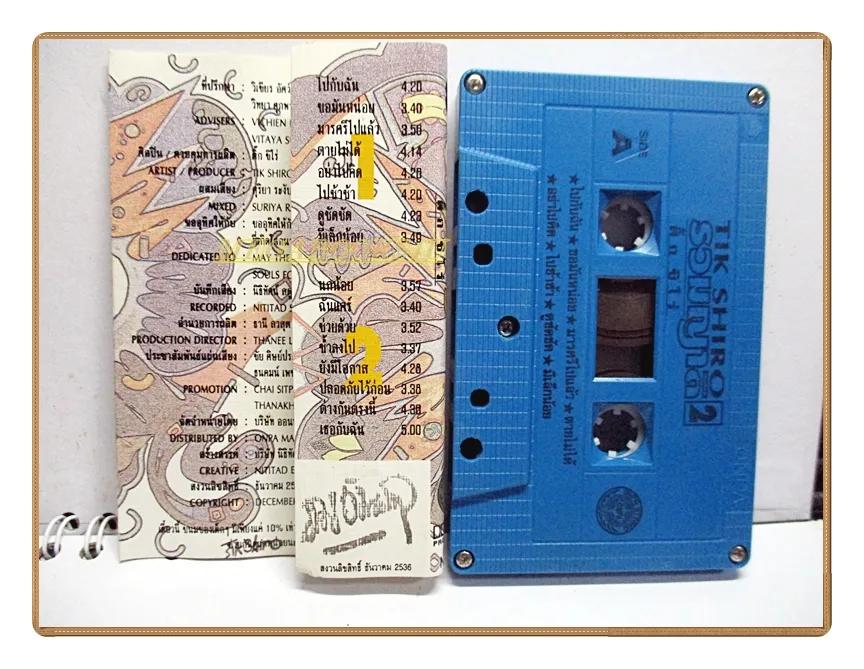 ที่ปรึกษา : วิเชียร
วิทยา
ADVISERS : VICHIEN
VITAYA
ศิลปิน / ควบคุมการผลิต : ติ๊ก ชิโร่
ARTIST / PRODUCER : TIK SHIRO
ผสมเสียง : สุริยา
MIXED : SURIYA R
ขออุทิศให้กับ :
DEDICATED TO : MAY THE
SOULS
บันทึกเสียง : นิธิทัศน์
RECORDED : NITITAD
อำนวยการผลิต : ธานี
PRODUCTION DIRECTOR : THANEE
ประชาสัมพันธ์แผ่นเสียง : ชัย
ธนคมน์
PROMOTION : CHAI SITP
THANAKH
จัดจำหน่ายโดย : บริษัท ออน
DISTRIBUTED BY : ONPA MA
สร้างสรรค์ : บริษัท นิธิทัศ
CREATIVE : NITITAD E
สงวนลิขสิทธิ์ : ธันวาคม 25
COPYRIGHT : DECEMBER
1
ไปกับฉัน 4.20
ขอมันหน่อย 3.40
มารศรีไปแล้ว 3.50
ตายไม่ได้ 4.14
อย่าไปคิด 4.26
ไปช้าช้า 4.20
ดูชัดชัด 4.23
มีเล็กน้อย 3.49
2
นกน้อย 3.57
ฉันแคร์ 3.40
ช่วยด้วย 3.52
ช้ำลงไป 3.37
ยังมีโอกาส 4.26
ปลอดภัยไว้ก่อน 3.36
ต่างกันตรงนี้ 4.38
เธอกับฉัน 5.00
สงวนลิขสิทธิ์ ธันวาคม 2536
SIDE
A
TIK SHIRO
รวมญาติ 2
ติ๊ก ชิโร่
★ ไปกับฉัน ★ ขอมันหน่อย ★ มารศรีไปแล้ว ★ ตายไม่ได้
★ อย่าไปคิด ★ ไปช้าช้า ★ ดูชัดชัด ★ มีเล็กน้อย